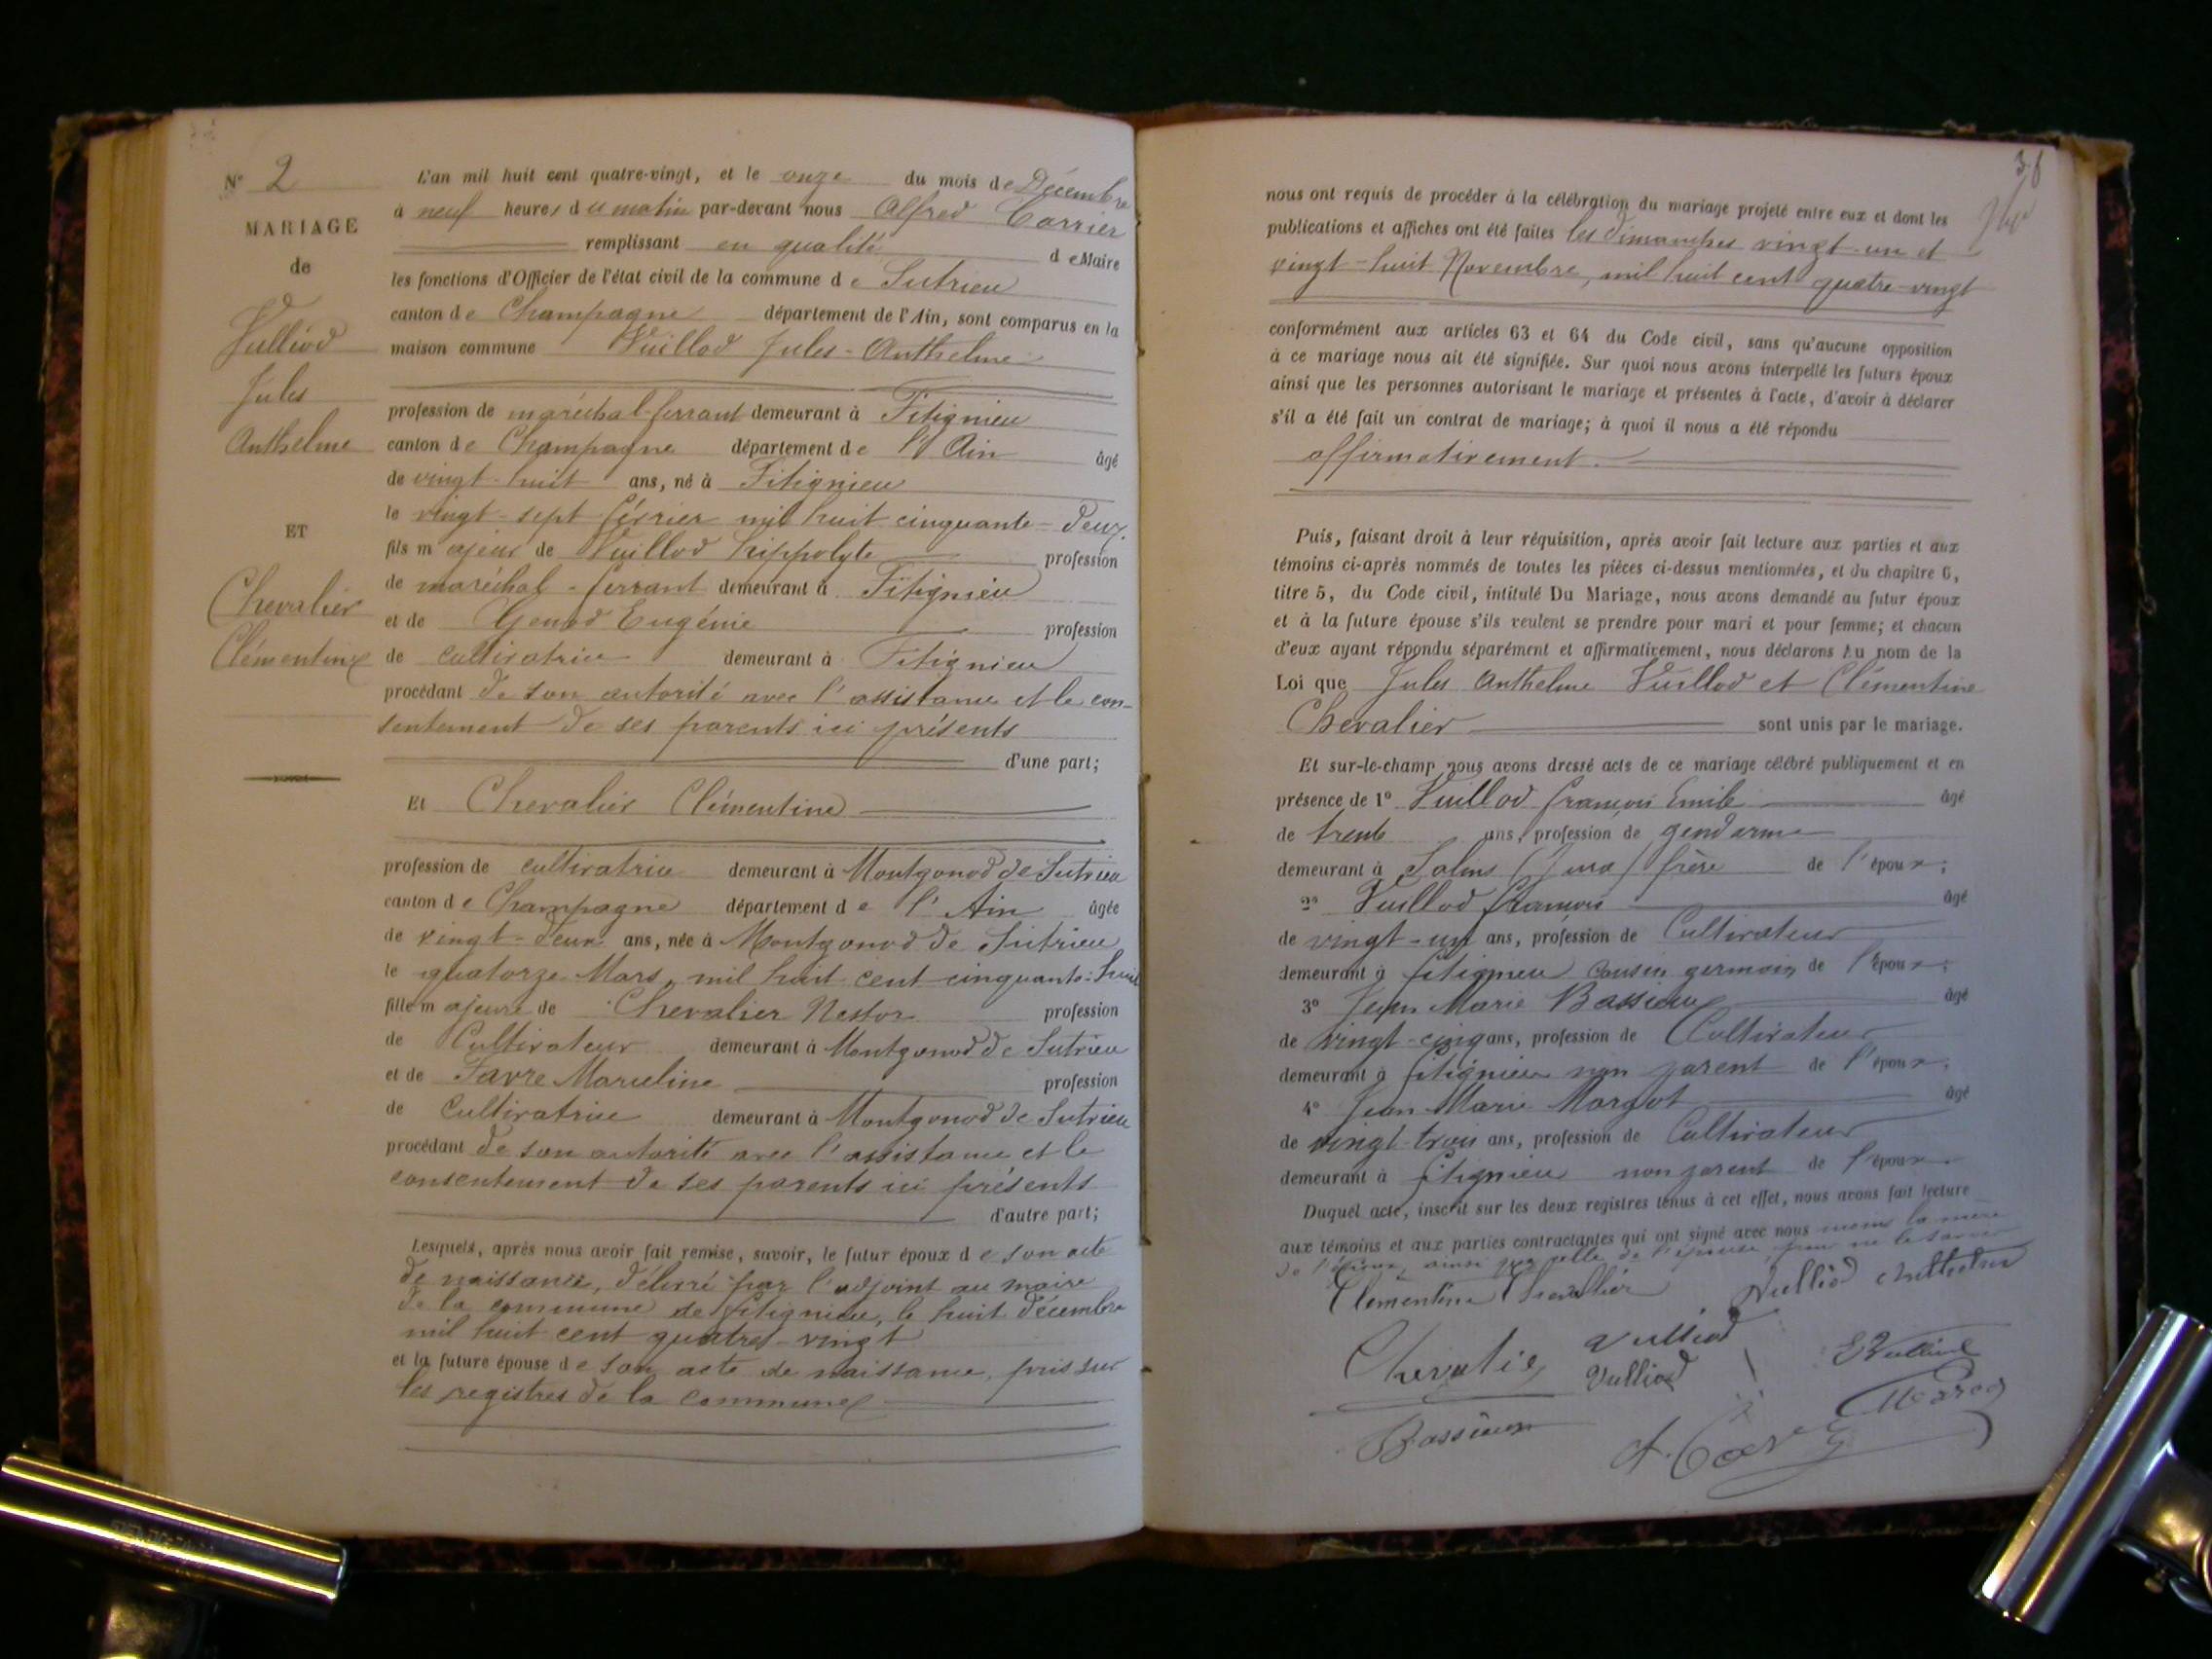 N° 2
MARIAGE
de
Vulliod
Jules
Anthelme
ET
Chevalier
Clémentine
L'an mil huit cent quatre-vingt, et le onze du mois de Décembre
à neuf heures du matin par-devant nous Alfred Carrier
remplissant en qualité de Maire
les fonctions d'Officier de l'état civil de la commune de Sutrieu
canton de Champagne département de l'Ain, sont comparus en la
maison commune Vuillod Jules-Anthelme
profession de maréchal-ferrant demeurant à Fitignieu
canton de Champagne département de l'Ain âgé
de vingt-huit ans, né à Fitignieu
le vingt-sept février mil huit cinquante-deux.
fils majeur de Vuillod hippolyte profession
de maréchal-ferrant demeurant à Fitignieu
et de Genod Eugénie profession
de cultivatrice demeurant à Fitignieu
procédant de son autorité avec l'assistance et le con-
sentement de ses parents ici présents
d'une part;
Et Chevalier Clémentine
profession de cultivatrice demeurant à Montgonod de Sutrieu
canton de Champagne département de l'Ain âgée
de vingt-deux ans, née à Montgonod de Sutrieu
le quatorze Mars, mil huit cent cinquante-huit
fille majeure de Chevalier Nestor profession
de Cultivateur demeurant à Montgonod de Sutrieu
et de Favre Marceline profession
de Cultivatrice demeurant à Montgonod de Sutrieu
procédant de son autorité avec l'assistance et le
consentement de ses parents ici présents
d'autre part;
Lesquels, après nous avoir fait remise, savoir, le futur époux de son acte
de naissance, délivré par l'adjoint au maire
de la commune de fitignieu, le huit décembre
mil huit cent quatre-vingt
et la future épouse de son acte de naissance, pris sur
les registres de la commune
38
nous ont requis de procéder à la célébration du mariage projeté entre eux et dont les
publications et affiches ont été faites les dimanches vingt-un et
vingt-huit Novembre, mil huit cent quatre-vingt
conformément aux articles 63 et 64 du Code civil, sans qu'aucune opposition
à ce mariage nous ait été signifiée. Sur quoi nous avons interpellé les futurs époux
ainsi que les personnes autorisant le mariage et présentes à l'acte, d'avoir à déclarer
s'il a été fait un contrat de mariage; à quoi il nous a été répondu
affirmativement.
Puis, faisant droit à leur réquisition, après avoir fait lecture aux parties et aux
témoins ci-après nommés de toutes les pièces ci-dessus mentionnées, et du chapitre 6,
titre 5, du Code civil, intitulé Du Mariage, nous avons demandé au futur époux
et à la future épouse s'ils veulent se prendre pour mari et pour femme; et chacun
d'eux ayant répondu séparément et affirmativement, nous déclarons Au nom de la
Loi que Jules Anthelme Vuillod et Clémentine
Chevalier sont unis par le mariage.
Et sur-le-champ nous avons dressé acte de ce mariage célébré publiquement et en
présence de 1° Vuillod françois Emile âgé
de trente ans, profession de gendarme
demeurant à Salins (Jura) frère de l'époux;
2° Vuillod François âgé
de vingt-un ans, profession de Cultivateur
demeurant à fitignieu cousin germain de l'époux;
3° Jean Marie Bassieux âgé
de vingt-cinq ans, profession de Cultivateur
demeurant à fitignieu non parent de l'époux.
4° Jean-Marie Margot âgé
de vingt-trois ans, profession de Cultivateur
demeurant à fitignieu non parent de l'époux.
Duquel acte, inscrit sur les deux registres tenus à cet effet, nous avons fait lecture
aux témoins et aux parties contractantes qui ont signé avec nous moins la mère
de l'époux, ainsi que celle de l'épouse pour ne le savoir
Clementine Chevallier Vulliod Anthelme
Chevalier Vulliod E Vulliod
Vulliod
Bassieux